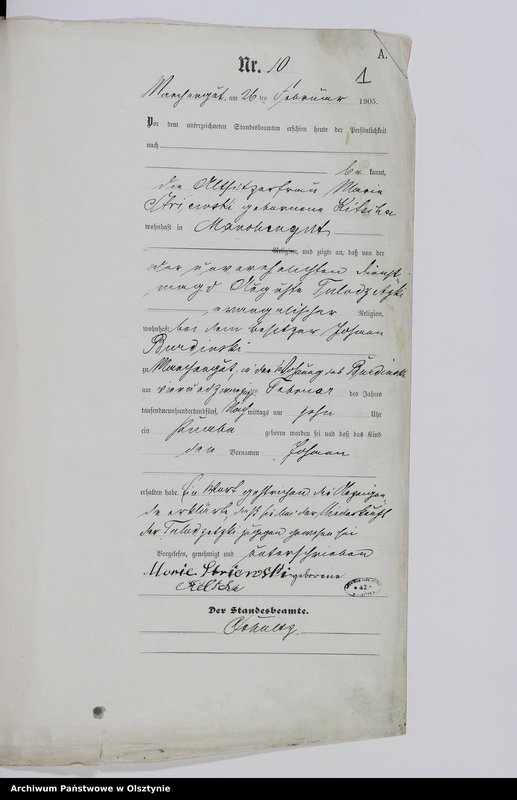 A.
Nr. 10
1
Marchengut, am 26 ten Februar 1905.
Vor dem unterzeichneten Standesbeamten erschien heute der Persönlichkeit
nach
be kannt,
die Altsitzerfrau Marie
Striewski geborene
wohnhaft in Marchengut
Religion, und zeigte an, daß von der
der unverehelichten Dienst-
magd Auguste Tulodzetzki
evangelischer Religion,
wohnhaft bei dem Besitzer Johann
Burdinski
zu Marchengut, in der Wohnung des Burdinski
am ten Februar des Jahres
tausendneunhundertundfünf, Nach mittags um zehn Uhr
ein Knabe geboren worden sei und daß das Kind
den Vornamen Johann
erhalten habe. Ein Wort gestrichen die Anzeigen-
de erklärte daß sie bei der Niederkunft
der Tulodzetzki zugegen gewesen sei
Vorgelesen, genehmigt und unterschrieben
Marie Striewski geborene
Der Standesbeamte.
Archiwum Państwowe w Olsztynie